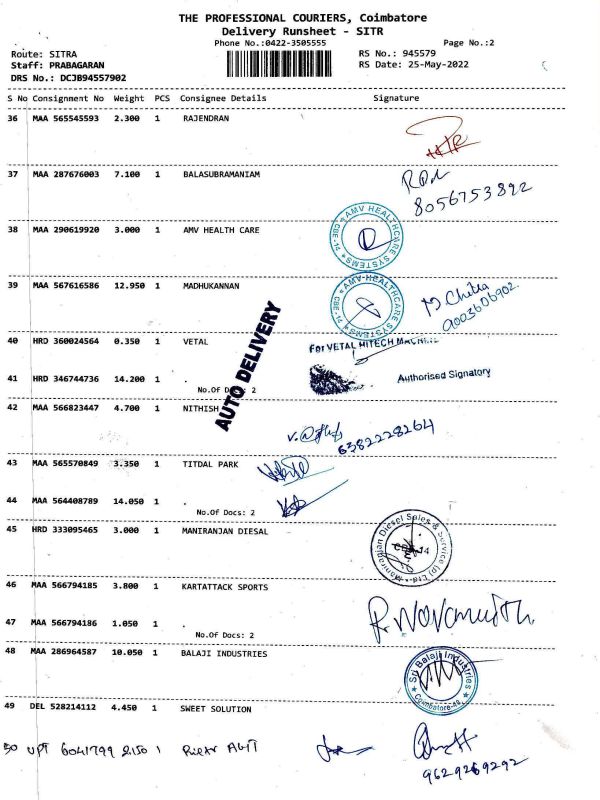 THE PROFESSIONAL COURIERS, Coimbatore
Delivery Runsheet - SITR
Phone No.:0422-3505555 Page No.:2
Route: SITRA RS No.: 945579
Staff: PRABAGARAN RS Date: 25-May-2022
DRS No.: DCJB94557902
S No Consignment No Weight PCS Consignee Details Signature
36 MAA 565545593 2.300 1 RAJENDRAN
37 MAA 287676003 7.100 1 BALASUBRAMANIAM
8056753892
38 MAA 290619920 3.000 1 AMV HEALTH CARE
AMV HEALTHCARE SYSTEMS CBE-14
39 MAA 567616586 12.950 1 MADHUKANNAN
AMV HEALTHCARE SYSTEMS CBE-14
M. Chitra
9003606902.
AUTO DELIVERY
40 HRD 360024564 0.350 1 VETAL
For VETAL HITECH MACHINE
41 HRD 346744736 14.200 1 .
No.Of Docs: 2
Authorised Signatory
42 MAA 566823447 4.700 1 NITHISH
6382228264
43 MAA 565570849 3.350 1 TITDAL PARK
44 MAA 564408789 14.050 1 .
No.Of Docs: 2
45 HRD 333095465 3.000 1 MANIRANJAN DIESAL
Maniranjan Diesel Sales & Service (p) Ltd. CBE-14
46 MAA 566794185 3.800 1 KARTATTACK SPORTS
47 MAA 566794186 1.050 1 .
No.Of Docs: 2
48 MAA 286964587 10.050 1 BALAJI INDUSTRIES
Sri Balaji Industries
49 DEL 528214112 4.450 1 SWEET SOLUTION
50 UPT 6041799 2.150 1
9629269292